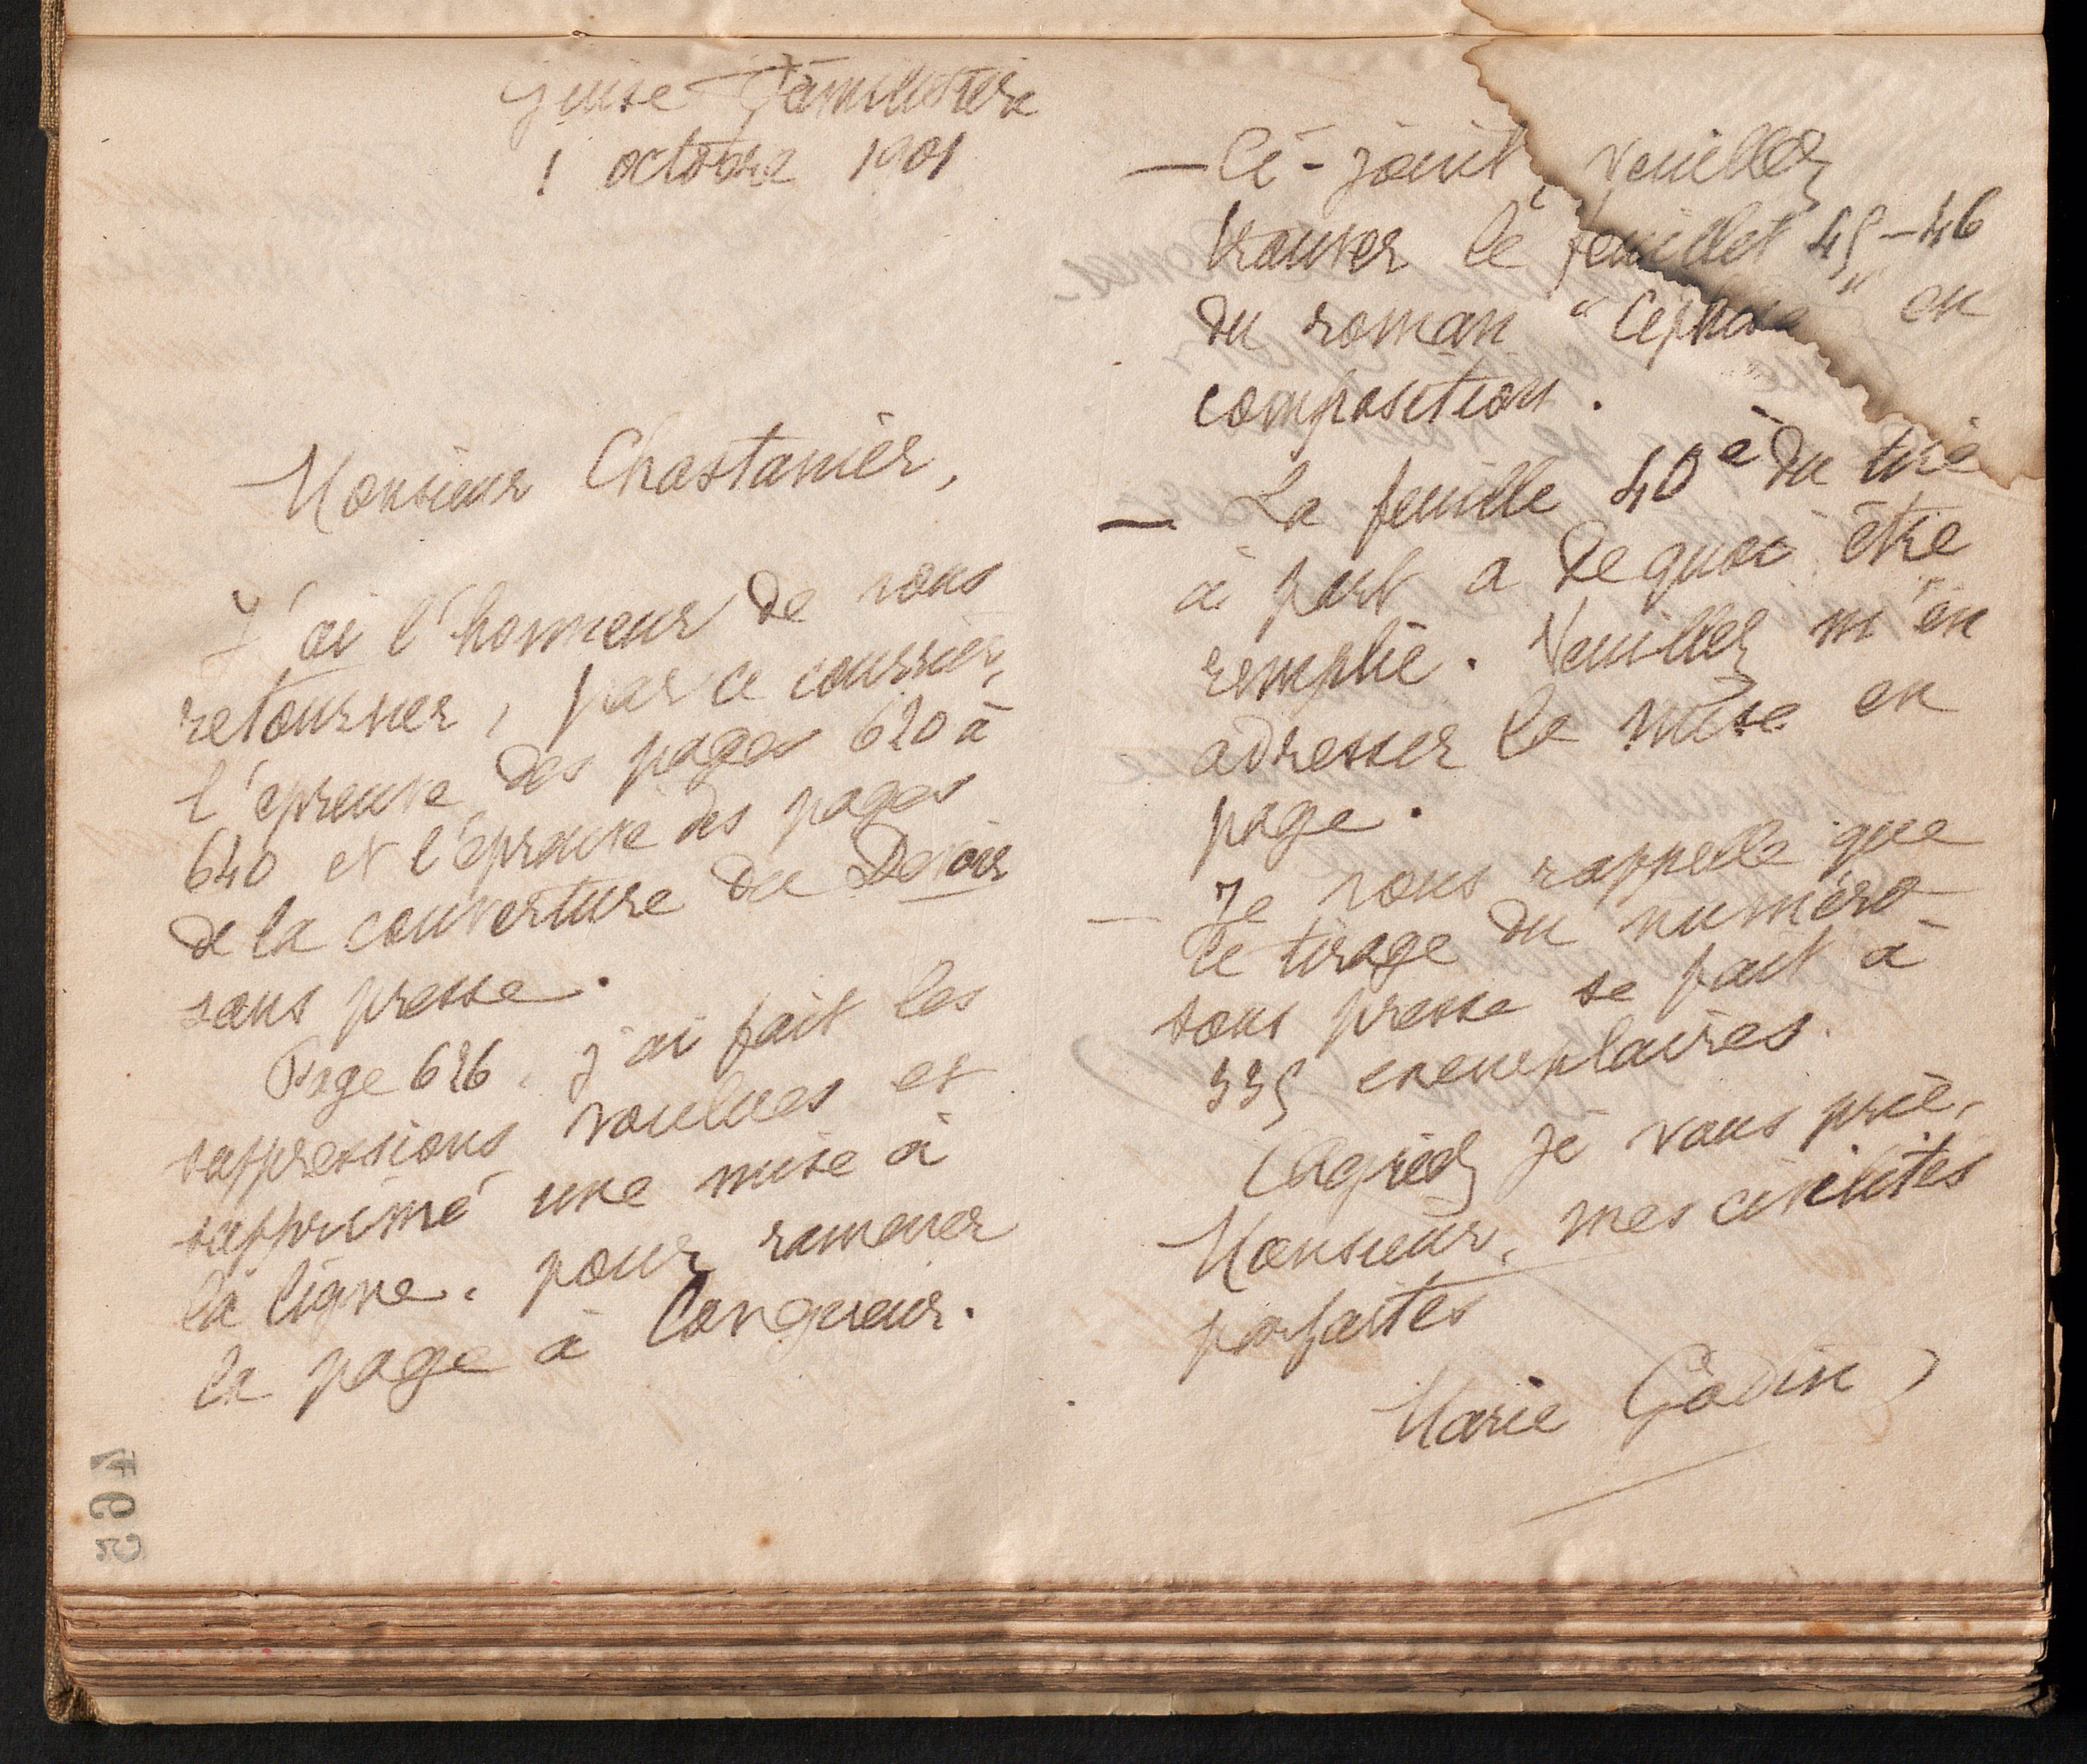 Guise Familistère
1 octobre 1901
Monsieur Chastanier,
J'ai l'honneur de vous
retourner, par ce courrier,
l'épreuve des pages 620 à
640 et l'épreuve des pages
de la couverture du Devoir
sous presse.
Page 626, j'ai fait les
suppressions voulues et
supprimé une mise à
la ligne, pour ramener
la page à longueur.
— Ci-joint, veuillez
trouver le feuillet 45-46
du roman "Céphise" en
composition.
— La feuille 40e du tiré
à part a de quoi être
remplie. Veuillez m'en
adresser la mise en
page.
— Je vous rappelle que
le tirage du numéro
sous presse se fait à
335 exemplaires.
Agréez je vous prie,
Monsieur, mes civilités
parfaites
Marie Godin
195